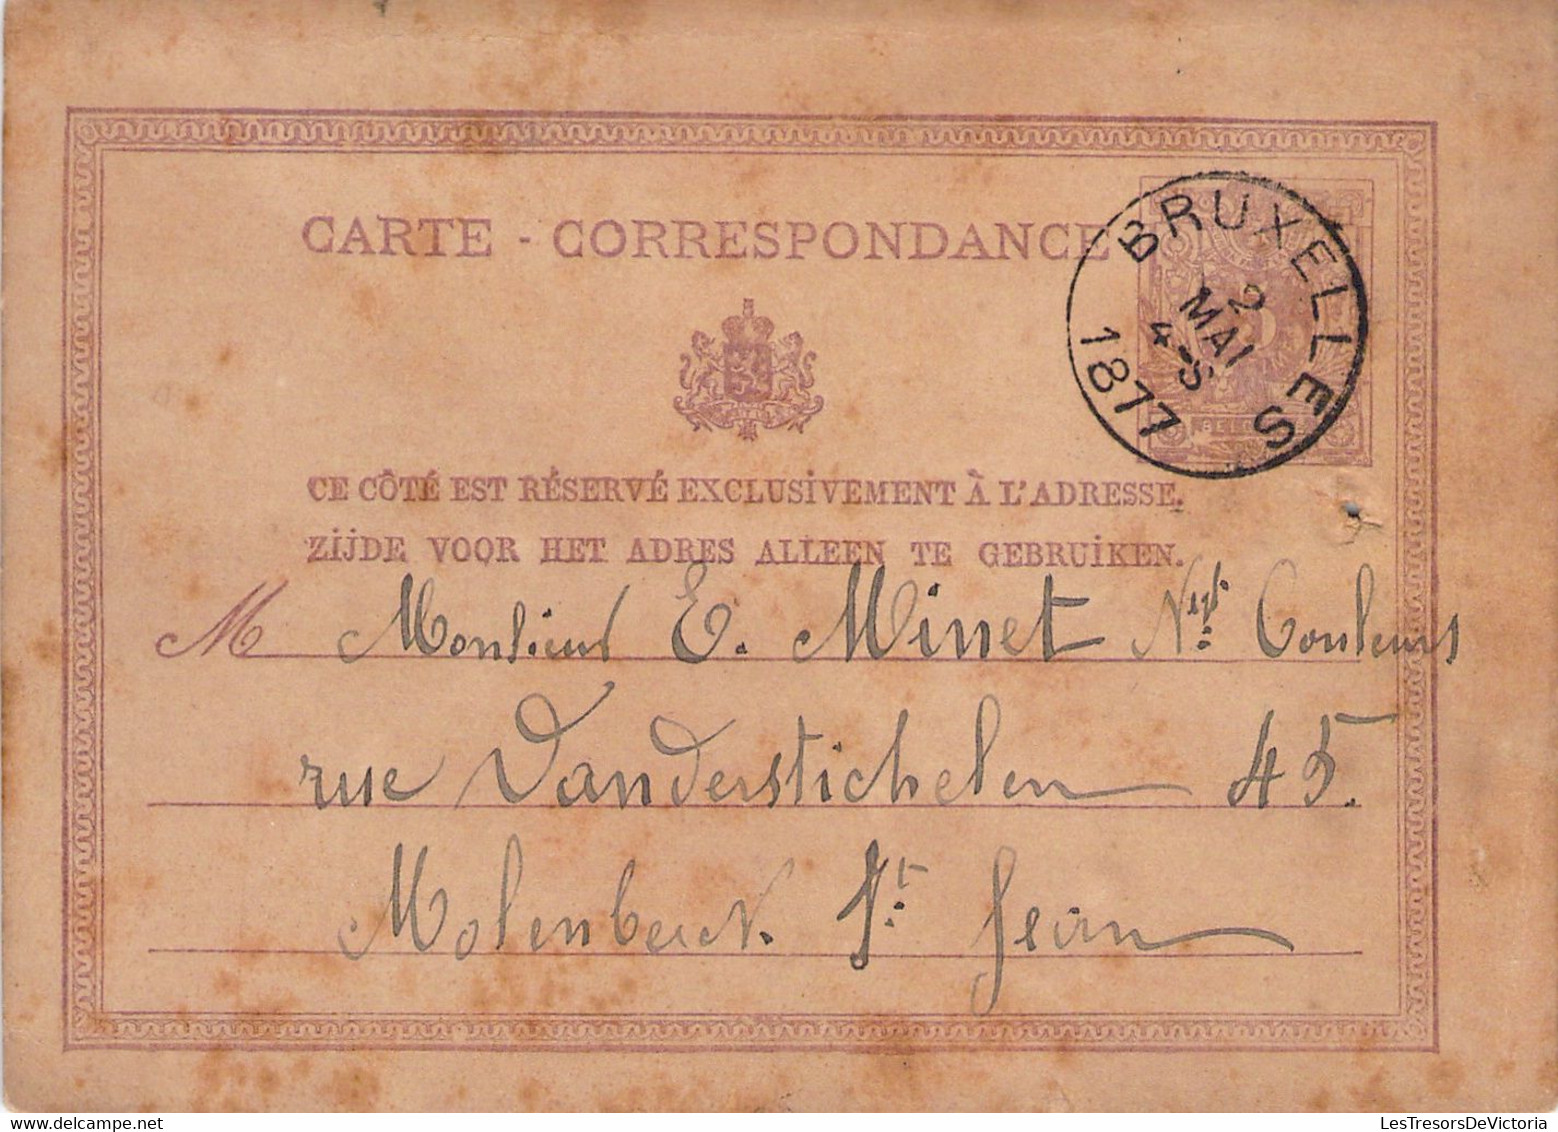 CARTE - CORRESPONDANCE
BRUXELLES
2
MAI
4-S
1877
5
BELGIQUE
CE CÔTÉ EST RÉSERVÉ EXCLUSIVEMENT À L'ADRESSE.
ZIJDE VOOR HET ADRES ALLEEN TE GEBRUIKEN.
M Monsieur E. Minet Nt Couleurs
rue Vanderstichelen 45.
Molenbeeck St Jean
LesTresorsDeVictoria